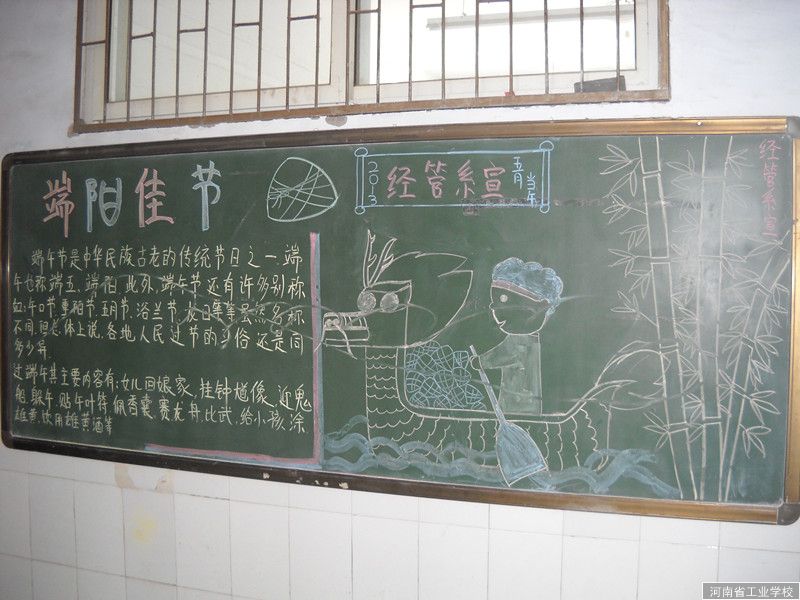 端阳佳节
2013
经管系宣
五月
当午
经管系宣
端午节是中华民族古老的传统节日之一端
午也称端五、端阳.此外,端午节还有许多别称
如:午日节,重阳节,五月节,浴兰节,
等等虽然名称
不同,但总体上说,各地人民过节的习俗还是同
多少异.
过端午其主要内容有:女儿回娘家,挂钟馗像、迎鬼
船、躲午、贴午叶符,佩香囊、赛龙舟、比武,给小孩涂
雄黄、饮用雄黄酒等
河南省工业学校